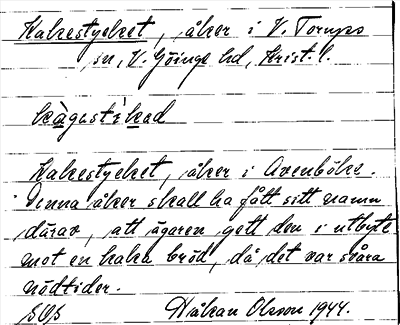 Kakestycket, åker i V. Torups
sn, V. Göinge hd, Krist. l.
Kakestycket, åker i Avenböke.
Denna åker skall ha fått sitt namn
därav, att ägaren gett den i utbyte
mot en kaka bröd, då det var svåra
nödtider.
Håkan Olsson 1944.